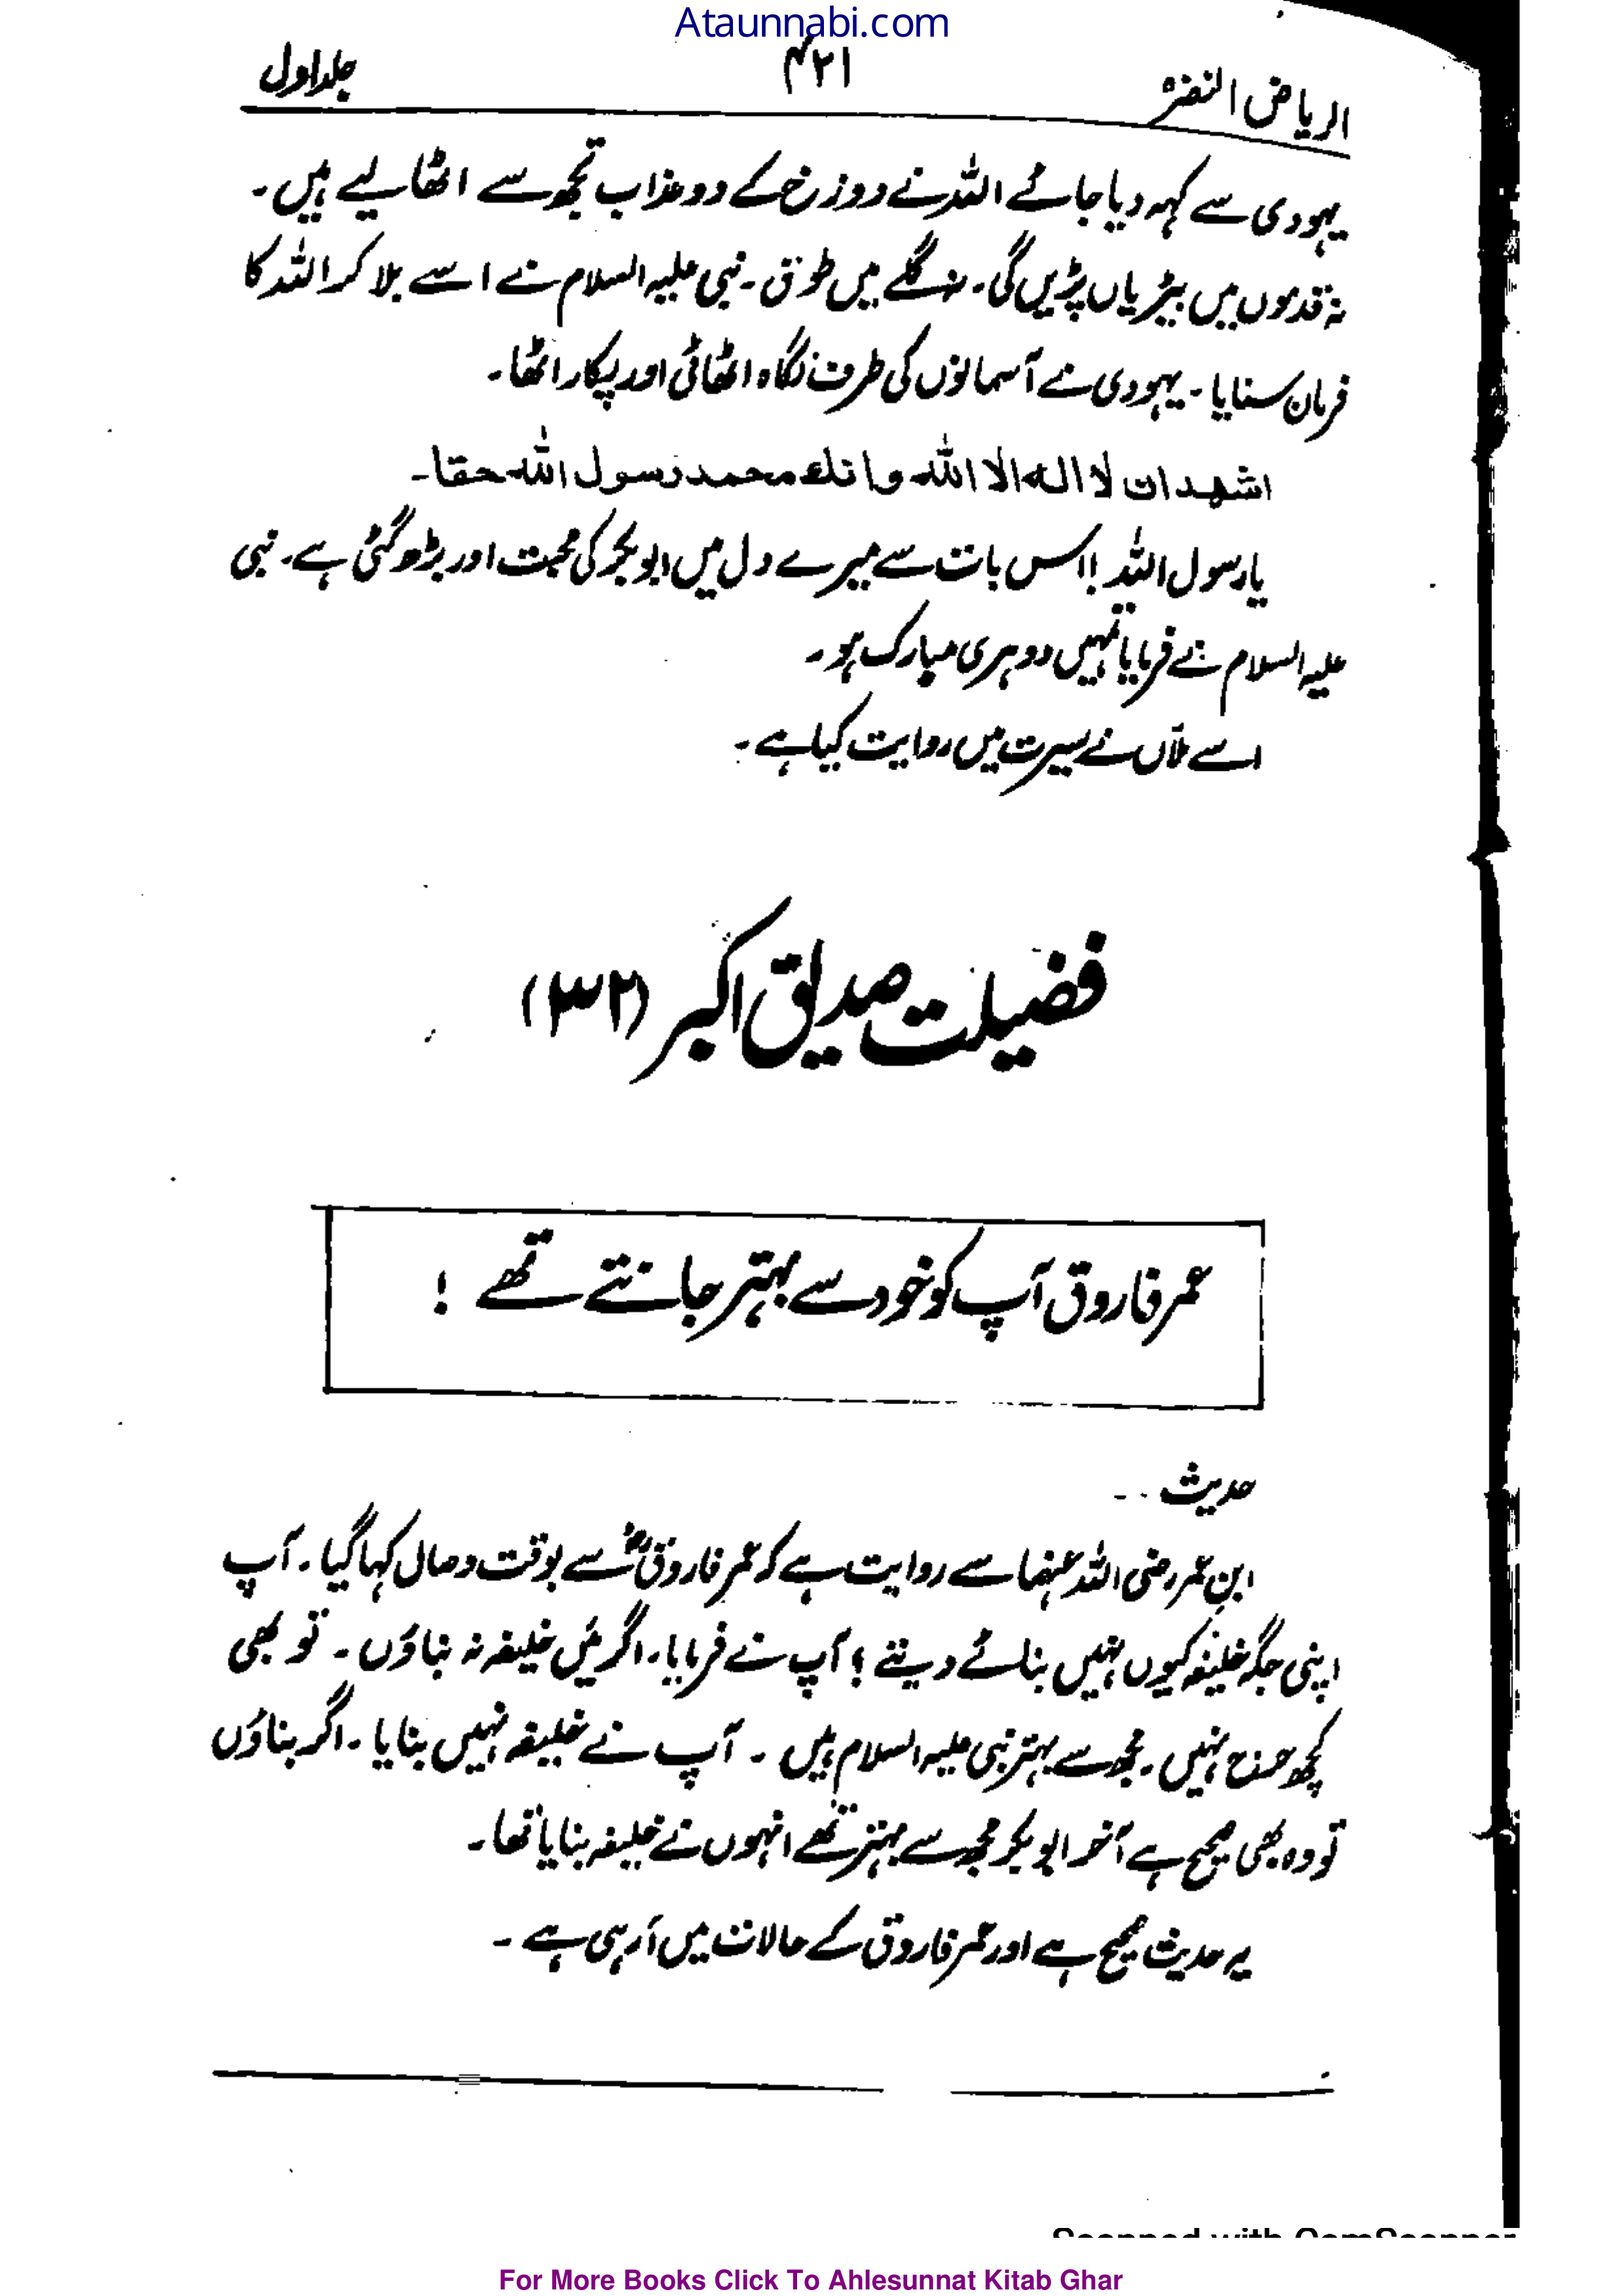 Ataunnabi.com
الریاض النضرہ ۴۲۱ جلد اول
یہودی سے کہہ دیا جائے اللہ نے دوزخ کے دو عذاب تجھ سے اٹھا لیے ہیں۔
نہ قدموں میں بیڑیاں پڑیں گی۔ نہ گلے میں طوق۔ نبی علیہ السلام نے اسے بلا کر اللہ کا
فرمان سنایا۔ یہودی نے آسمانوں کی طرف نگاہ اٹھائی اور پکار اٹھا۔
اشهد ان لا اله الا الله وانك محمد رسول الله حقا۔
یا رسول اللہ! اس بات سے میرے دل میں ابوبکر کی محبت اور بڑھ گئی ہے۔ نبی
علیہ السلام نے فرمایا تمہیں دوہری مبارک ہو۔
اسے ملاں نے سیرت میں روایت کیا ہے۔
فضیلت صدیق اکبر (۳۲)
عمر فاروق آپ کو خود سے بہتر جانتے تھے !
حدیث --
ابن عمر رضی اللہ عنہما سے روایت ہے کہ عمر فاروقؓ سے بوقت وصال کہا گیا۔ آپ
اپنی جگہ خلیفہ کیوں نہیں بنائے دیتے؟ آپ نے فرمایا۔ اگر میں خلیفہ نہ بناؤں۔ تو بھی
کچھ حرج نہیں۔ مجھ سے بہتر نبی علیہ السلام ہیں۔ آپ نے خلیفہ نہیں بنایا۔ اگر بناؤں
تو وہ بھی صحیح ہے آخر ابوبکر مجھ سے بہتر تھے انہوں نے خلیفہ بنایا تھا۔
یہ حدیث صحیح ہے اور عمر فاروق کے حالات میں آ رہی ہے۔
Scanned with CamScanner
For More Books Click To Ahlesunnat Kitab Ghar